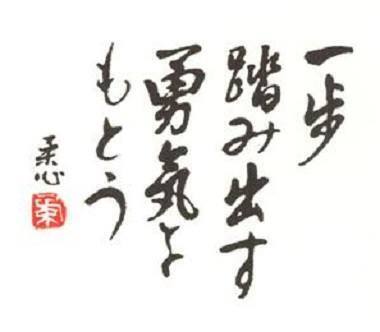 一歩
踏み出す
勇気を
もとう